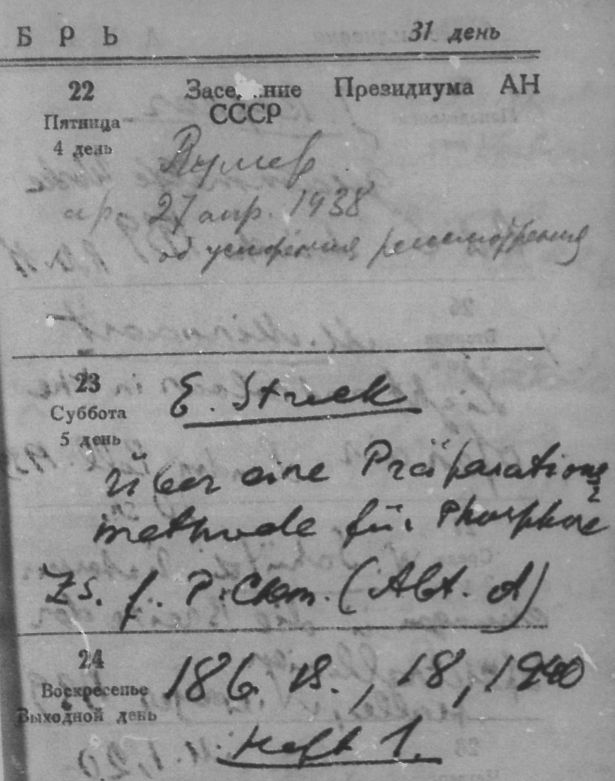 БРЬ 31 день
22 Засе...ние Президиума АН
Пятница СССР
4 день
27 апр. 1938
об ускорении рассмотрения
23 E. Streck
Суббота
5 день
Über eine Präparations
methode für Phosphore
Zs. f. P. Chem. (Abt. A)
24
Воскресенье 186 B., 18, 1940
Выходной день
Heft 1.